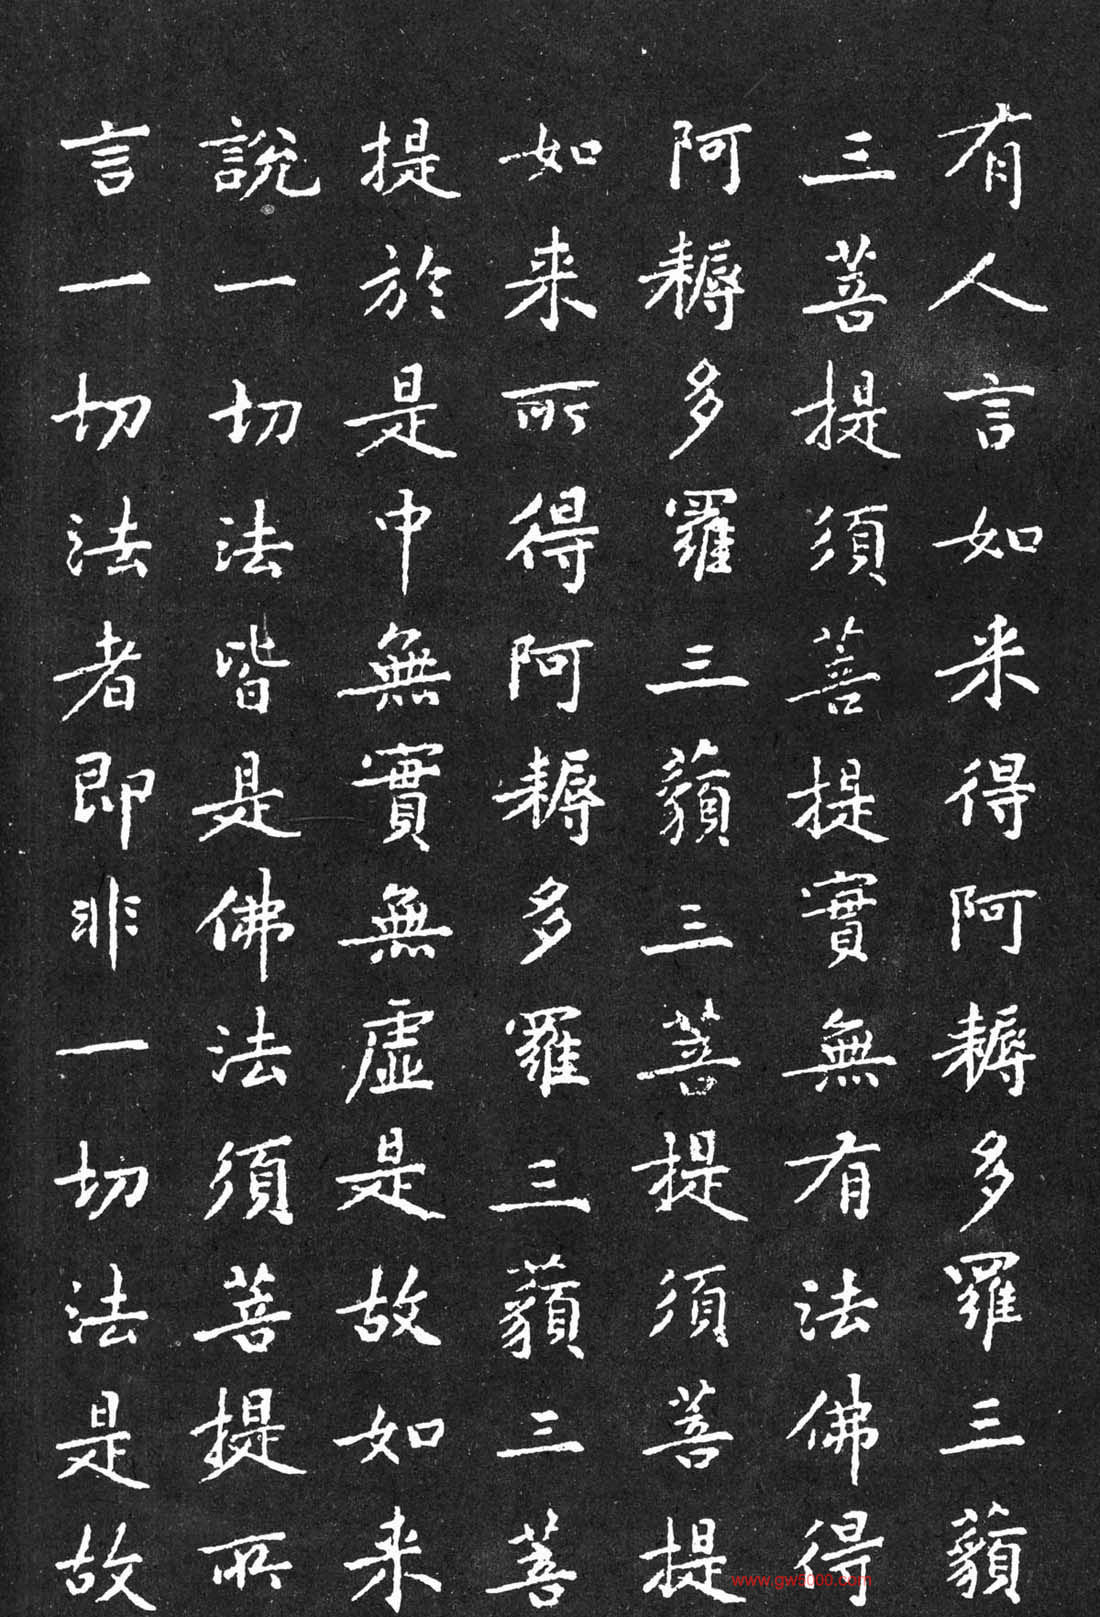 有人言如来得阿耨多羅三藐
三菩提須菩提實無有法佛得
阿耨多羅三藐三菩提須菩提
如来所得阿耨多羅三藐三菩
提於是中無實無虛是故如来
說一切法皆是佛法須菩提所
言一切法者即非一切法是故
www.gw5000.com